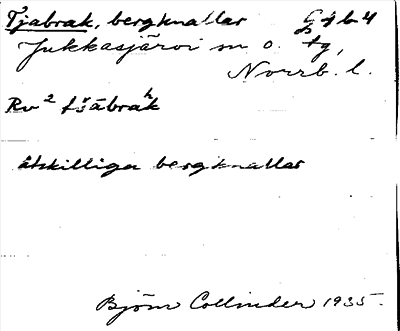 Tjabrak, bergknallar Gj b 4
Jukkasjärvi sn o. tg,
Norrb. l.
Rv² tšäbrakʰ
åtskilliga bergknallar
Björn Collinder 1935.